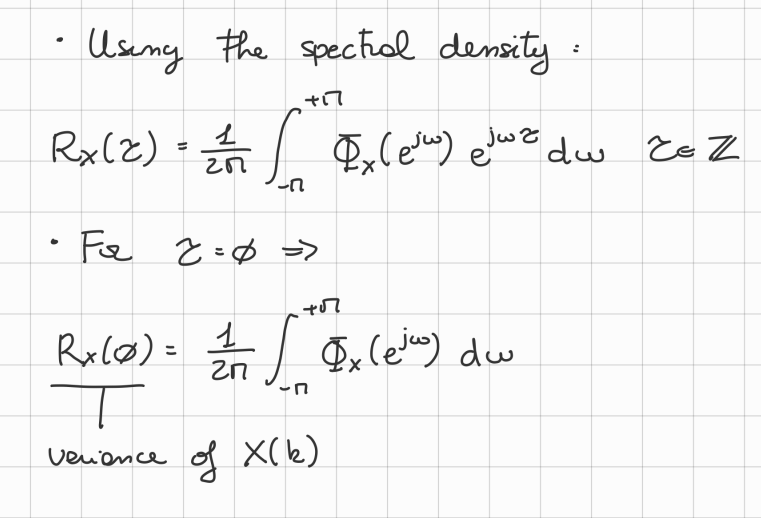 · Using the spectral density :
Rx(τ) = 1/2π ∫_{-π}^{+π} Φx(e^{jω}) e^{jωτ} dω τ∈ℤ
· For τ = ∅ ⇒
Rx(∅) = 1/2π ∫_{-π}^{+π} Φx(e^{jω}) dω
variance of X(k)